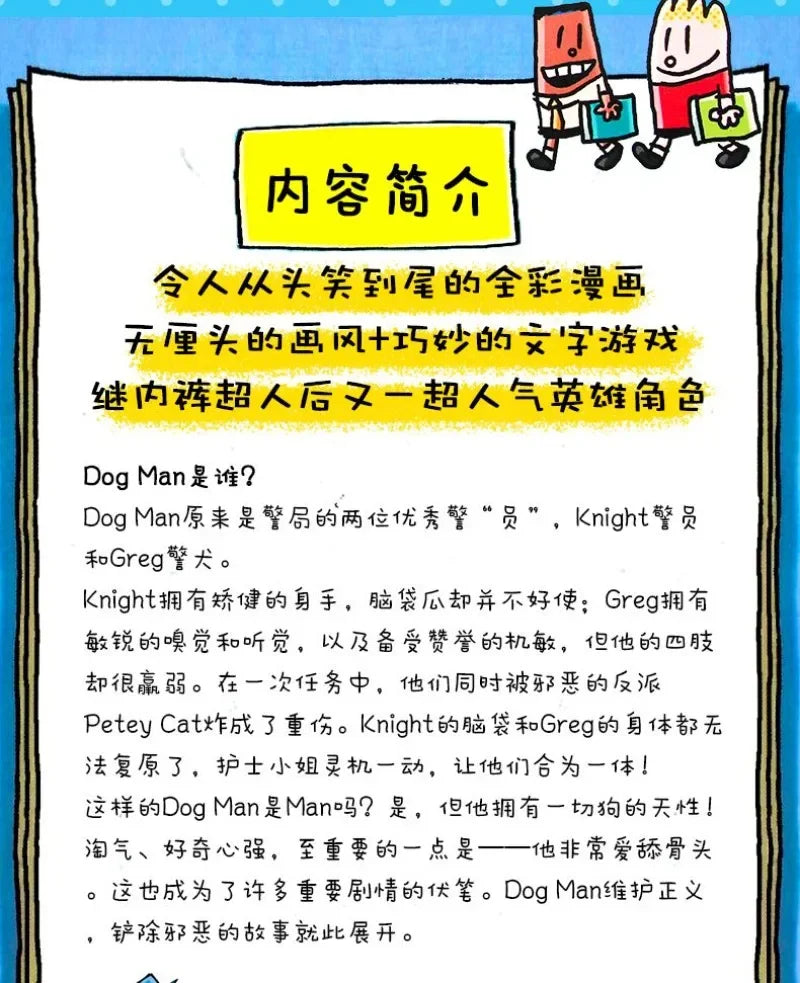 内容简介
令人从头笑到尾的全彩漫画
无厘头的画风+巧妙的文字游戏
继内裤超人后又一超人气英雄角色
Dog Man是谁？
Dog Man原来是警局的两位优秀警“员”，Knight警员
和Greg警犬。
Knight拥有矫健的身手，脑袋瓜却并不好使；Greg拥有
敏锐的嗅觉和听觉，以及备受赞誉的机敏，但他的四肢
却很羸弱。在一次任务中，他们同时被邪恶的反派
Petey Cat炸成了重伤。Knight的脑袋和Greg的身体都无
法复原了，护士小姐灵机一动，让他们合为一体！
这样的Dog Man是Man吗？是，但他拥有一切狗的天性！
淘气、好奇心强，至重要的一点是——他非常爱舔骨头
。这也成为了许多重要剧情的伏笔。Dog Man维护正义
，铲除邪恶的故事就此展开。